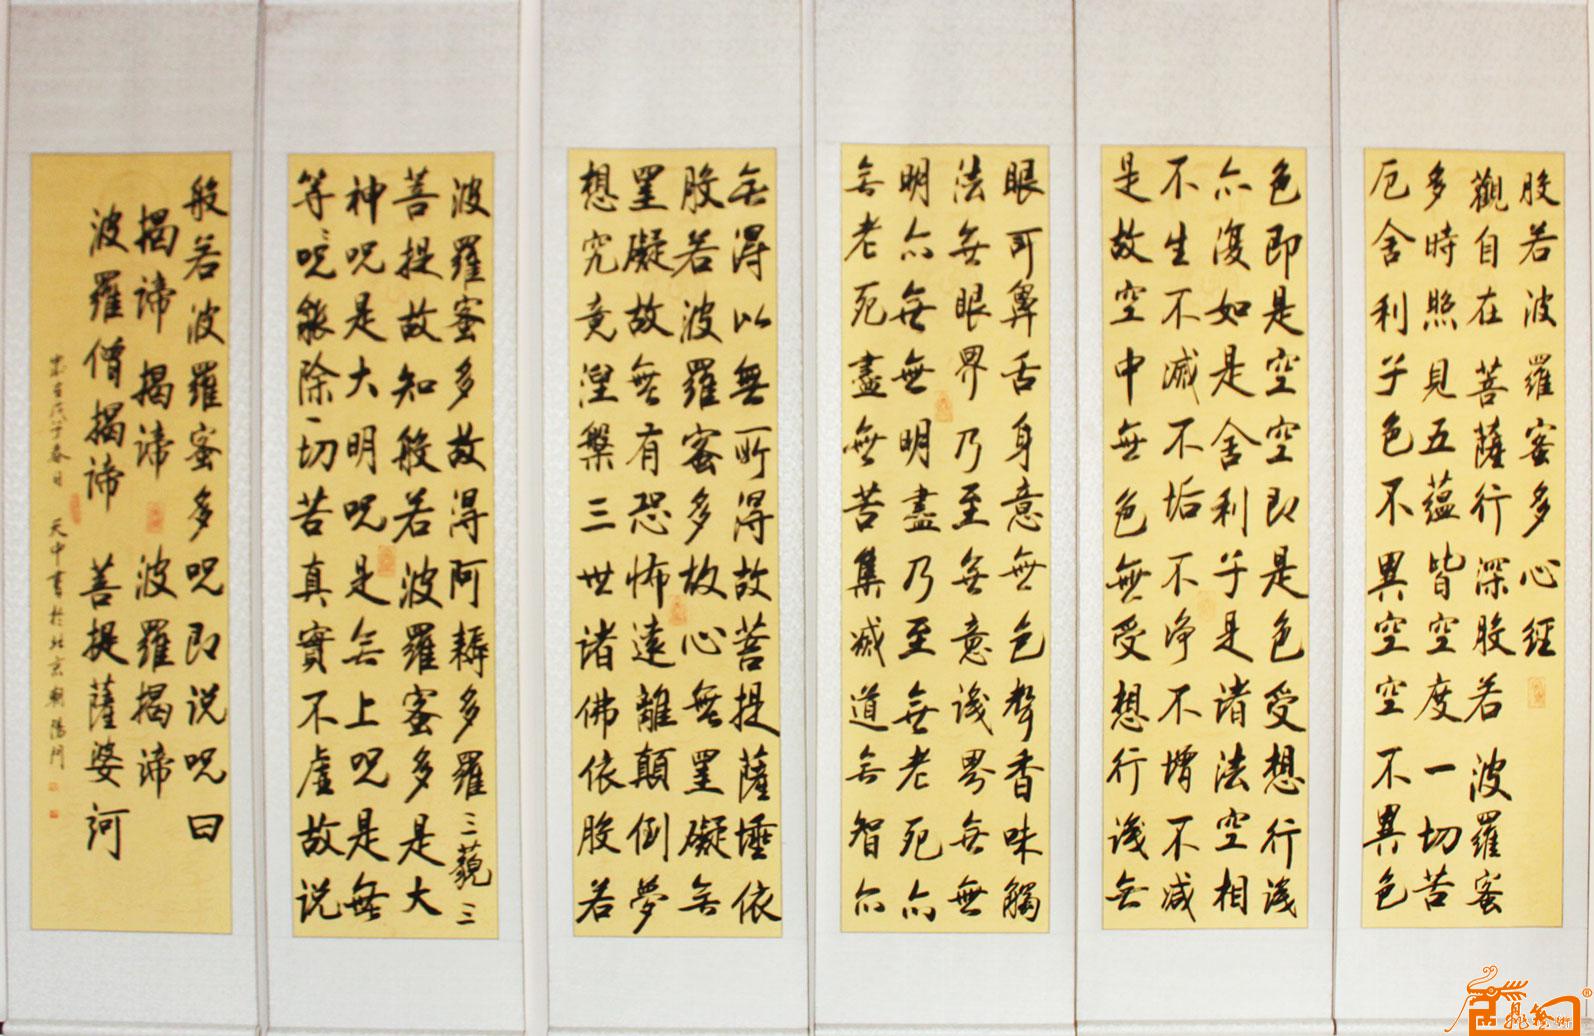 般若波羅蜜多心經
觀自在菩薩行深般若波羅蜜
多時照見五蘊皆空度一切苦
厄舍利子色不異空空不異色
色即是空空即是色受想行識
亦復如是舍利子是諸法空相
不生不滅不垢不净不增不減
是故空中無色無受想行識無
眼耳鼻舌身意無色聲香味觸
法無眼界乃至無意識界無無
明亦無無明盡乃至無老死亦
無老死盡無苦集滅道無智亦
無得以無所得故菩提薩埵依
般若波羅蜜多故心無罣礙無
罣礙故無有恐怖遠離顛倒夢
想究竟涅槃三世諸佛依般若
波羅蜜多故得阿耨多羅三藐三
菩提故知般若波羅蜜多是大
神呪是大明呪是無上呪是無
等々呪能除一切苦真實不虛故说
般若波羅蜜多呪即说呪曰
揭諦揭諦 波羅揭諦
波羅僧揭諦 菩提薩婆訶
歲在戊子春日 天中書於北京朝陽門